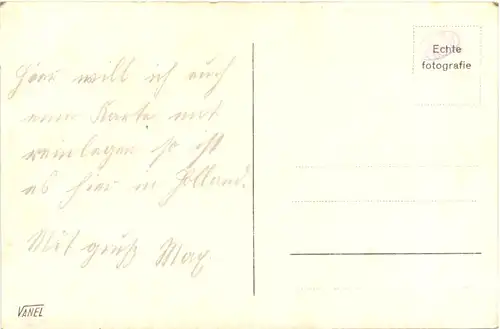 Hier will ich auch
eine Karte mit
reinlegen so ist
es hier in Holland.
Mit gruß Max
Echte
fotografie
VANEL